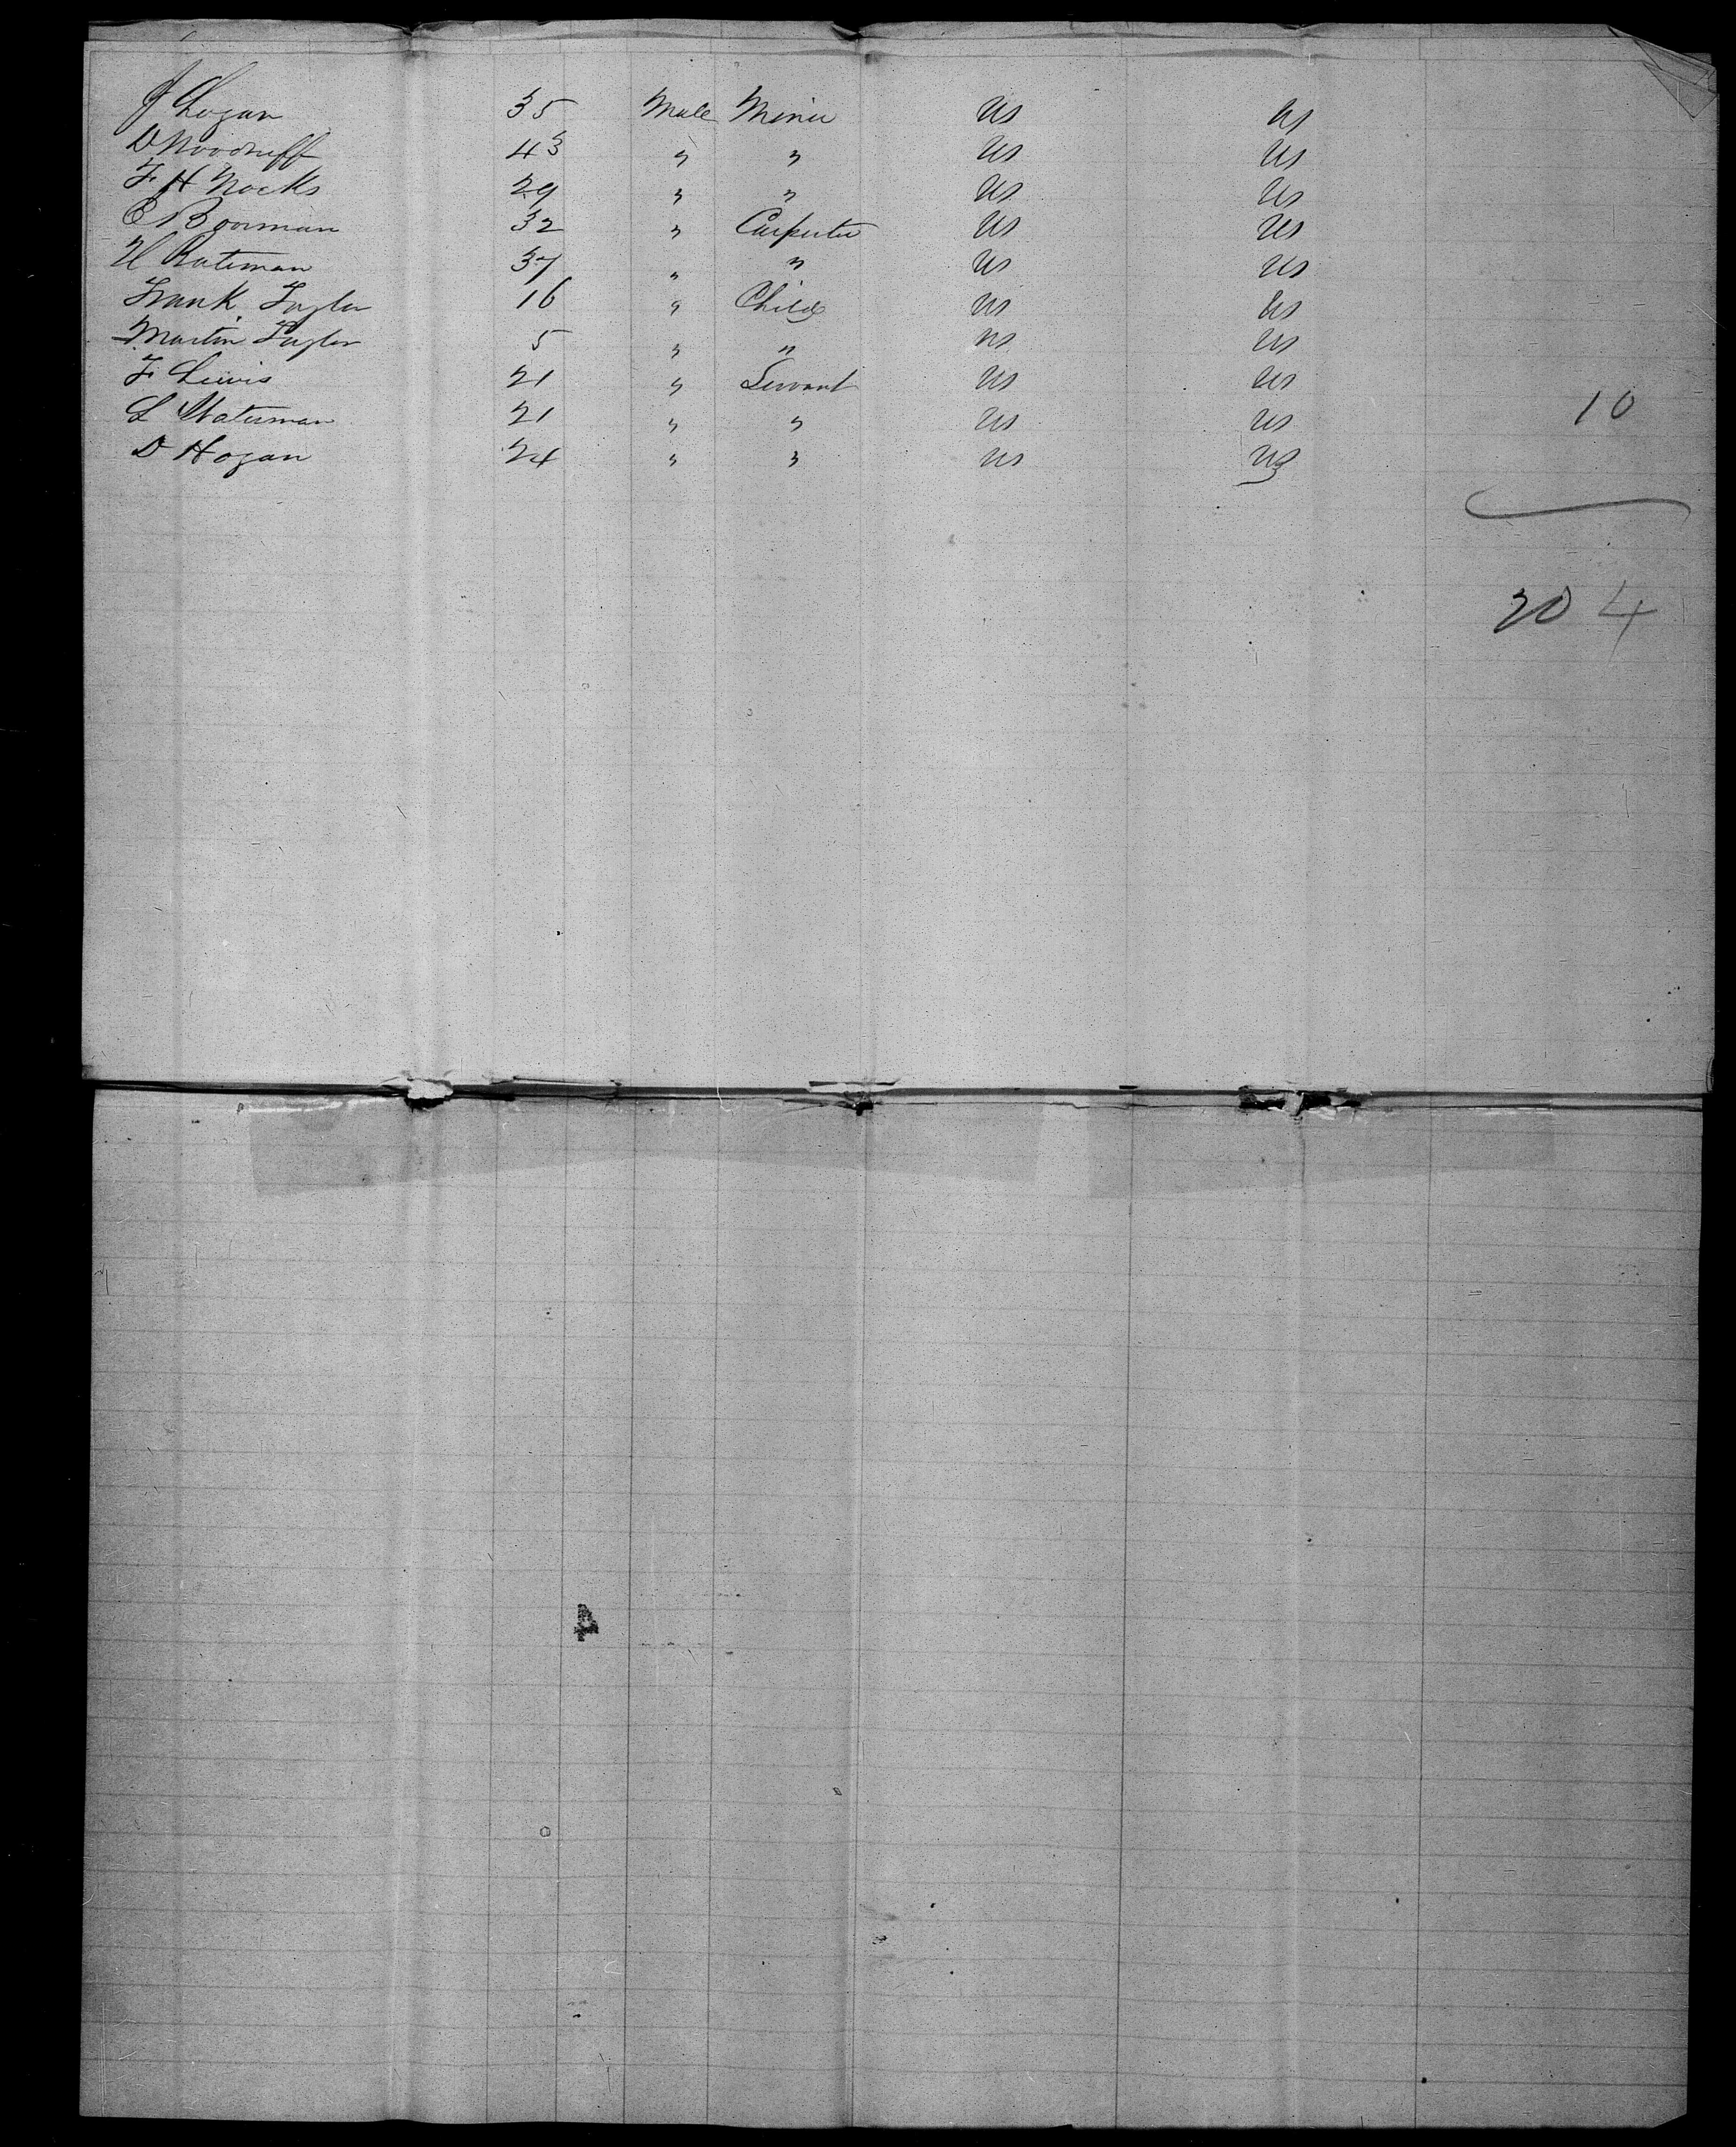 J Logan 35 Male Miner US US
D Woodruff 43 " " US US
F H Nocks 29 " " US US
C Boorman 32 " Carpenter US US
H Bateman 37 " " US US
Frank Taylor 16 " Child US US
Martin Taylor 5 " " US US
F Lewis 21 " Servant US US
L Waterman 21 " " US US 10
D Hogan 24 " " US US
204